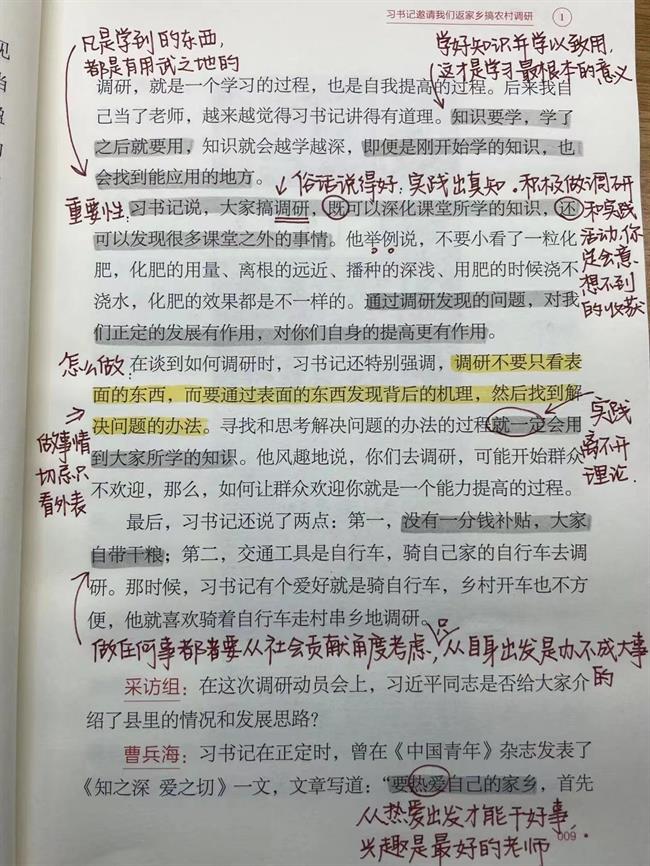 习书记邀请我们返家乡搞农村调研 1
凡是学到的东西,
都是有用武之地的
学好知识并学以致用,
这才是学习最根本的意义
调研,就是一个学习的过程,也是自我提高的过程。后来我自
己当了老师,越来越觉得习书记讲得有道理。知识要学,学了
之后就要用,知识就会越学越深,即便是刚开始学的知识,也
会找到能应用的地方。
俗话说得好:实践出真知。积极做调研
和实践
活动,你
定会意
想不到
的收获
重要性:
习书记说,大家搞调研,既可以深化课堂所学的知识,还
可以发现很多课堂之外的事情。他举例说,不要小看了一粒化
肥,化肥的用量、离根的远近、播种的深浅、用肥的时候浇不
浇水,化肥的效果都是不一样的。通过调研发现的问题,对我
们正定的发展有作用,对你们自身的提高更有作用。
怎么做:
在谈到如何调研时,习书记还特别强调,调研不要只看表
面的东西,而要通过表面的东西发现背后的机理,然后找到解
决问题的办法。寻找和思考解决问题的办法的过程就一定会用
到大家所学的知识。他风趣地说,你们去调研,可能开始群众
不欢迎,那么,如何让群众欢迎你就是一个能力提高的过程。
做事情
切忌只
看外表
实践
离不开
理论.
最后,习书记还说了两点:第一,没有一分钱补贴,大家
自带干粮;第二,交通工具是自行车,骑自己家的自行车去调
研。那时候,习书记有个爱好就是骑自行车,乡村开车也不方
便,他就喜欢骑着自行车走村串乡地调研。
做任何事都要从社会贡献角度考虑,只从自身出发是办不成大事
的
采访组:在这次调研动员会上,习近平同志是否给大家介
绍了县里的情况和发展思路?
曹兵海:习书记在正定时,曾在《中国青年》杂志发表了
《知之深 爱之切》一文,文章写道:“要热爱自己的家乡,首先
从热爱出发才能干好事,
兴趣是最好的老师
009